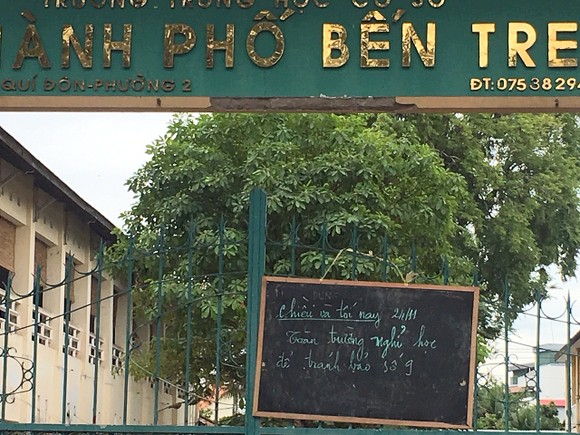 TRƯỜNG TRUNG HỌC CƠ SỞ
HÀNH PHỐ BẾN TRE
QUÍ ĐÔN-PHƯỜNG 2
ĐT: 075 38 294
Chiều và tối nay 24/11
Toàn trường nghỉ học
để tránh bão số 9